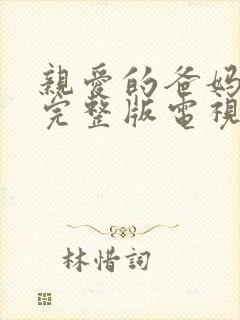 親愛的爸媽
完整版電視
林惜詞